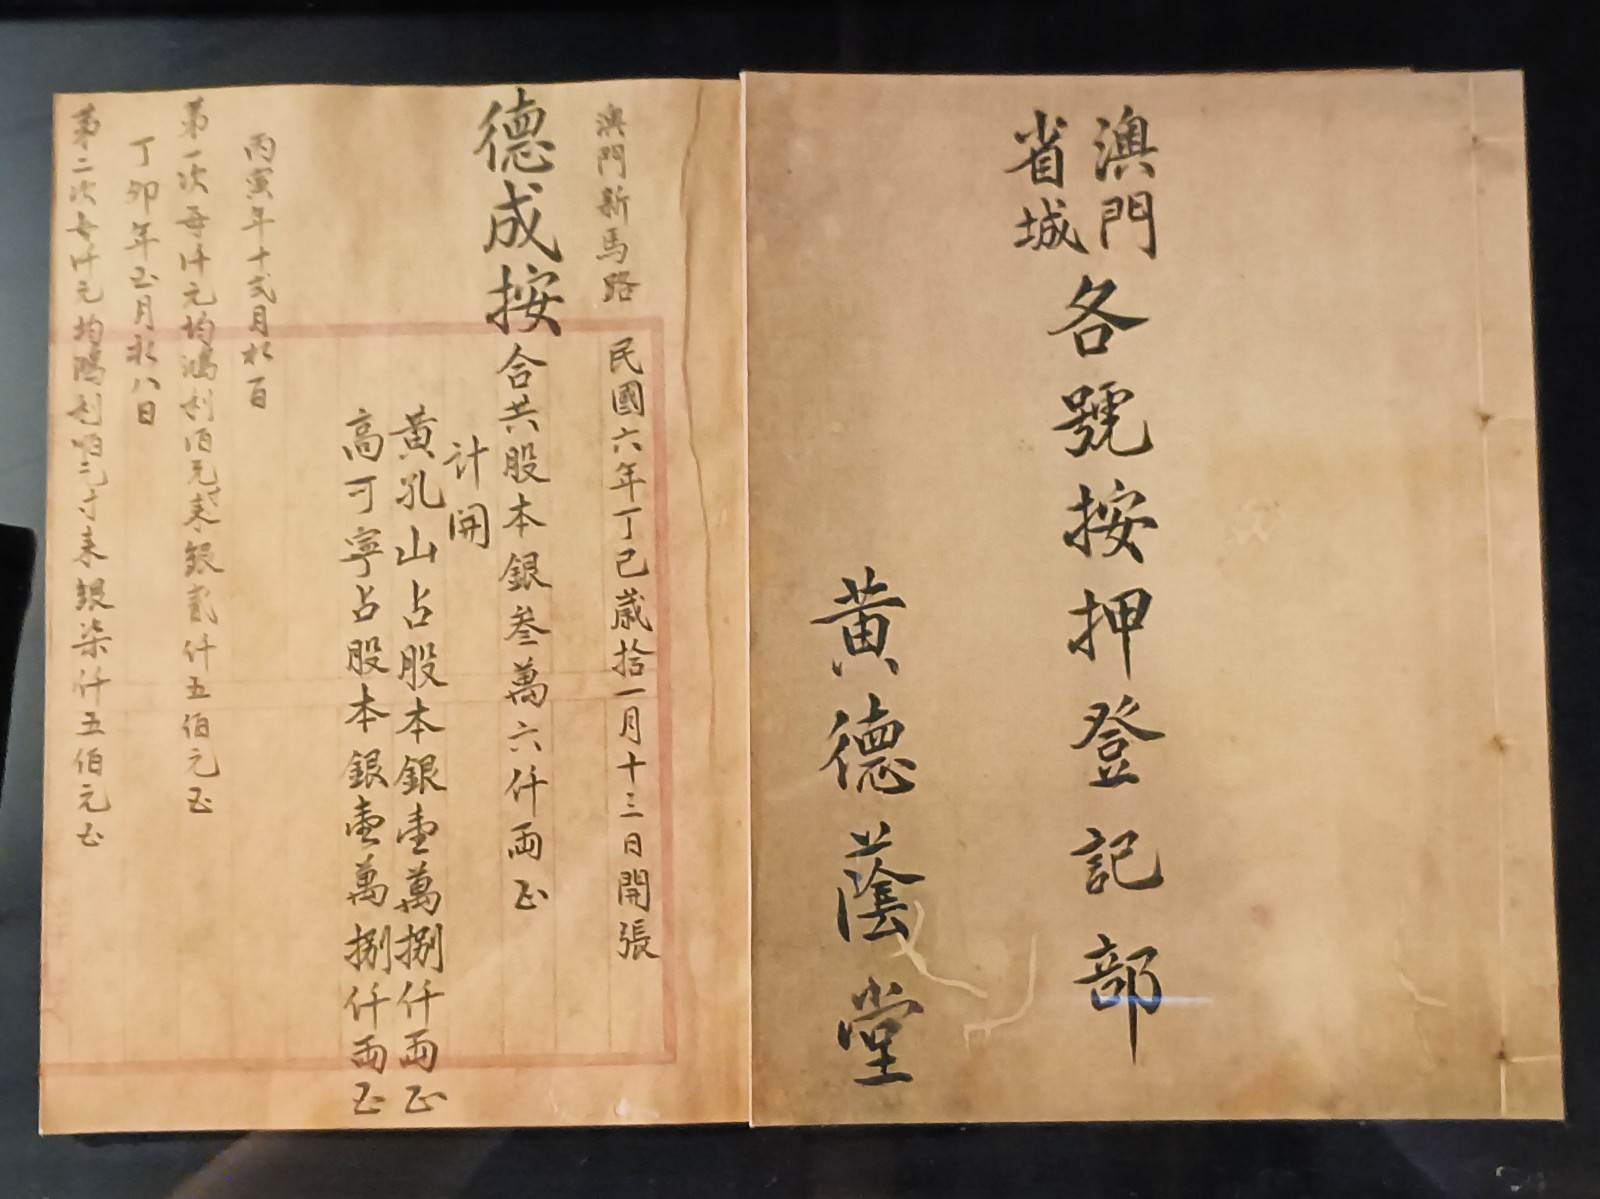 澳門
省城
各號按押登記部
黄德蔭堂
澳門新馬路 民國六年丁巳歲拾一月十三日開張
德成按合共股本銀叁萬六仟両正
計開
黄孔山占股本銀壹萬捌仟両正
高可寧占股本銀壹萬捌仟両正
丙寅年十弍月
第一次每仟元均鴻利佰元来銀貳仟五佰元正
丁卯年正月初八日
第二次每仟元均鴻利来銀柒仟五佰元正